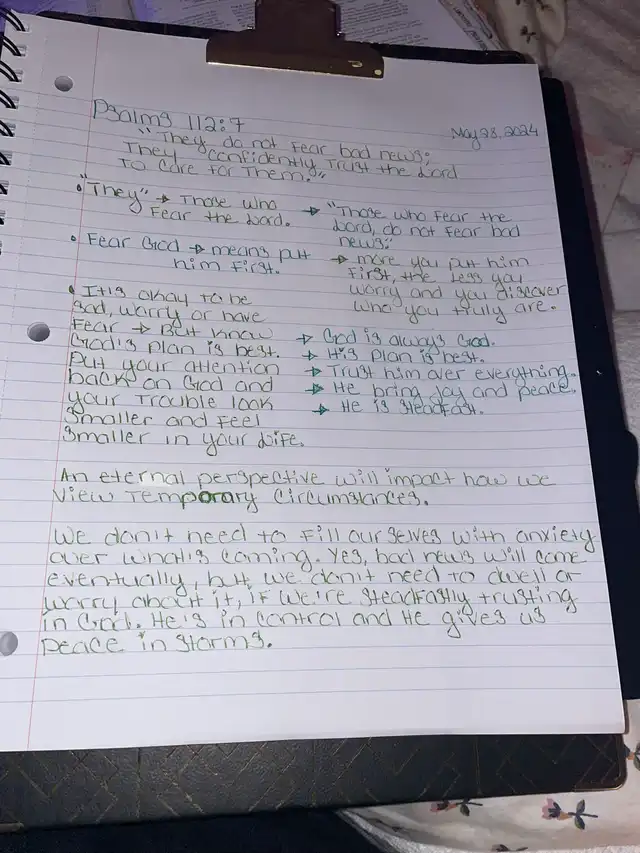 Psalms 112:7
May 28, 2024
"They do not fear bad news;
They confidently trust the Lord
to care for them."
• "They" → Those who
fear the Lord.
→ "Those who fear the
Lord, do not fear bad
news;"
• Fear God → means put
him first.
→ more you put him
first, the less you
worry and you discover
who you truly are.
• It is okay to be
sad, worry or have
fear → But know
God's plan is best.
Put your attention
back on God and
your trouble look
smaller and feel
smaller in your life.
→ God is always God.
→ His plan is best.
→ Trust him over everything.
→ He bring joy and peace.
→ He is steadfast.
An eternal perspective will impact how we
view temporary circumstances.
We don't need to fill ourselves with anxiety
over what is coming. Yes, bad news will come
eventually, but we don't need to dwell or
worry about it, if we're steadfastly trusting
in God. He's in control and He gives us
peace in storms.